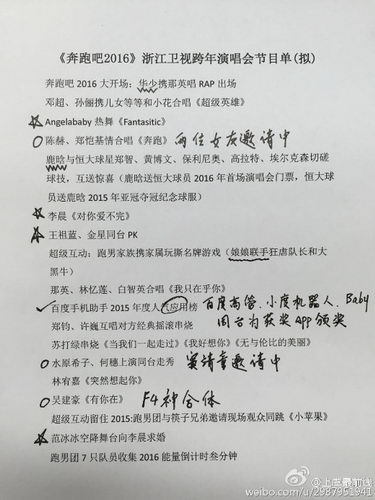 《奔跑吧2016》浙江卫视跨年演唱会节目单(拟)
奔跑吧 2016 大开场：华少携那英唱 RAP 出场
邓超、孙俪携儿女等等和小花合唱《超级英雄》
Angelababy 热舞《Fantasitic》
陈赫、郑恺基情合唱《奔跑》 两任女友邀请中
鹿晗与恒大球星郑智、黄博文、保利尼奥、高拉特、埃尔克森切磋
球技，互送惊喜（鹿晗送恒大球员 2016 年首场演唱会门票，恒大球
员送鹿晗 2015 年亚冠夺冠纪念球服）
李晨《对你爱不完》
王祖蓝、金星同台 PK
超级互动：跑男家族携家属玩撕名牌游戏（娘娘联手狂虐队长和大
黑牛）
那英、林忆莲、白智英合唱《我只在乎你》
百度手机助手 2015 年度人气应用榜 百度高管、小度机器人、Baby
同台为获奖APP颁奖
郑钧、许巍互唱对方经典摇滚串烧
苏打绿串烧《当我们一起走过》《我好想你》《无与伦比的美丽》
水原希子、何穗上演同台走秀 窦靖童邀请中
林宥嘉《突然想起你》
吴建豪《有你在》 F4神合体
超级互动留住 2015:跑男团与筷子兄弟邀请现场观众同跳《小苹果》
范冰冰空降舞台向李晨求婚
跑男团 7 只队员收集 2016 能量倒计时叁分钟
@上层最前线
weibo.com/u/2987991941